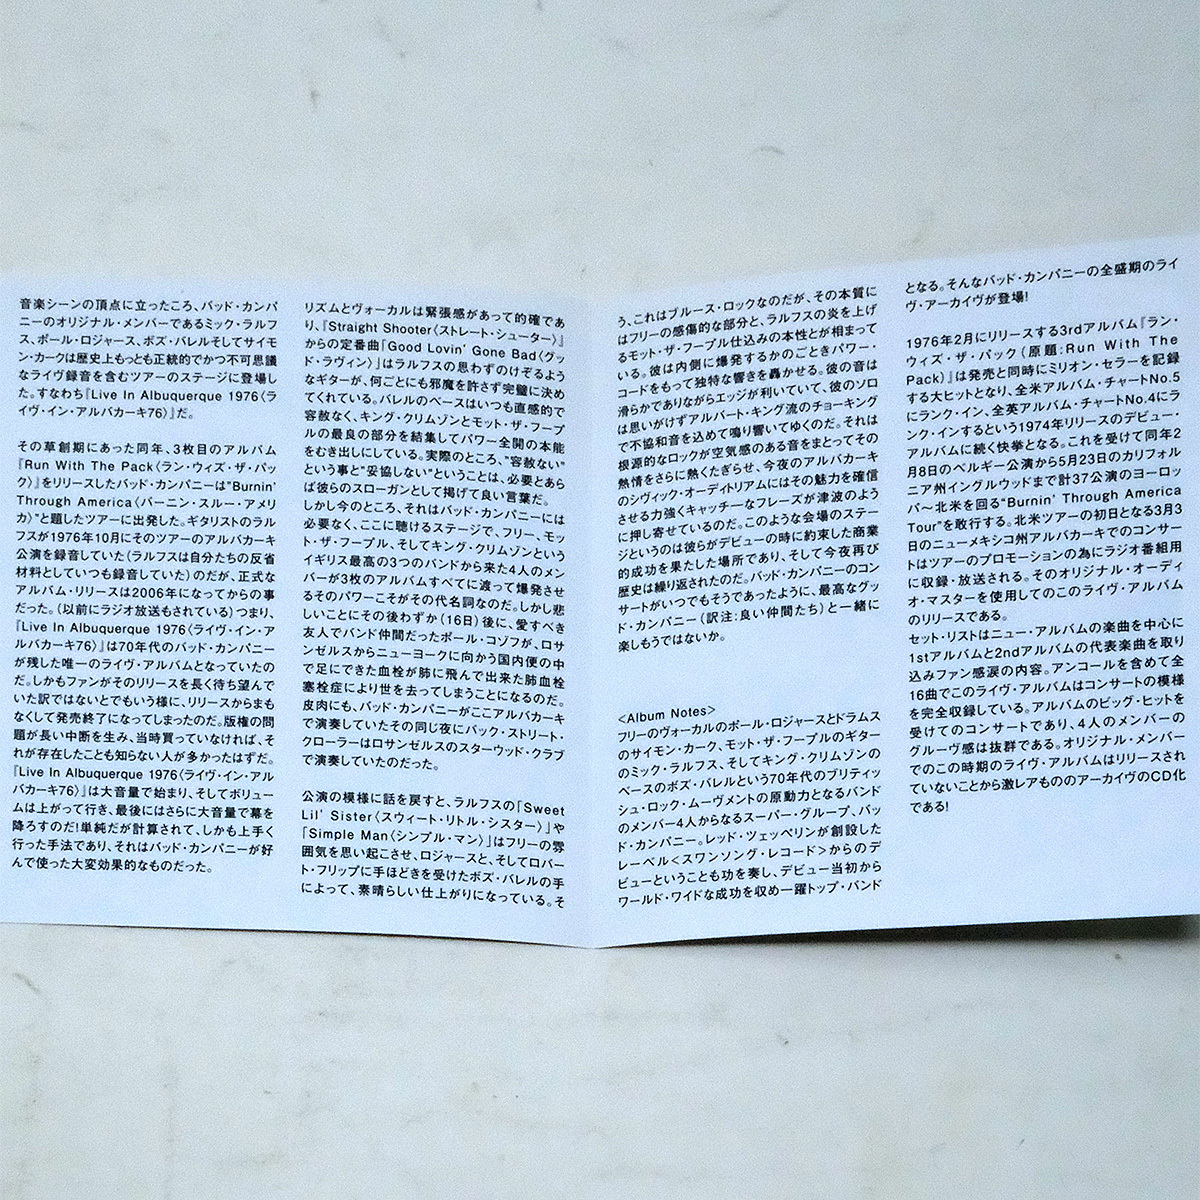 音楽シーンの頂点に立ったころ、バッド・カンパ
ニーのオリジナル・メンバーであるミック・ラルフ
ス、ポール・ロジャース、ボズ・バレルそしてサイモ
ン・カークは歴史上もっとも正統的でかつ不可思議
なライヴ録音を含むツアーのステージに登場し
た。すなわち『Live In Albuquerque 1976〈ラ
イヴ・イン・アルバカーキ76〉』だ。
その草創期にあった同年、3枚目のアルバム
『Run With The Pack〈ラン・ウィズ・ザ・パッ
ク〉』をリリースしたバッド・カンパニーは"Burnin'
Through America〈バーニン・スルー・アメリ
カ〉"と題したツアーに出発した。ギタリストのラル
フスが1976年10月にそのツアーのアルバカーキ
公演を録音していた(ラルフスは自分たちの反省
材料としていつも録音していた)のだが、正式な
アルバム・リリースは2006年になってからの事
だった。(以前にラジオ放送もされている)つまり、
『Live In Albuquerque 1976〈ライヴ・イン・ア
ルバカーキ76〉』は70年代のバッド・カンパニー
が残した唯一のライヴ・アルバムとなっていたの
だ。しかもファンがそのリリースを長く待ち望んで
いた訳ではないとでもいう様に、リリースからまも
なくして発売終了になってしまったのだ。版権の問
題が長い中断を生み、当時買っていなければ、そ
れが存在したことも知らない人が多かったはずだ。
『Live In Albuquerque 1976〈ライヴ・イン・アル
バカーキ76〉』は大音量で始まり、そしてボリュー
ムは上がって行き、最後にはさらに大音量で幕を
降ろすのだ!単純だが計算されて、しかも上手く
行った手法であり、それはバッド・カンパニーが好
んで使った大変効果的なものだった。
リズムとヴォーカルは緊張感があって的確であ
り、『Straight Shooter〈ストレート・シューター〉』
からの定番曲「Good Lovin' Gone Bad〈グッ
ド・ラヴィン〉」はラルフスの思わずのけぞるよう
なギターが、何ごとにも邪魔を許さず完璧に決め
てくれている。バレルのベースはいつも直感的で
容赦なく、キング・クリムゾンとモット・ザ・フープ
ルの最良の部分を結集してパワー全開の本能
をむき出しにしている。実際のところ、"容赦ない"
という事と"妥協しない"ということは、必要とあら
ば彼らのスローガンとして掲げて良い言葉だ。
しかし今のところ、それはバッド・カンパニーには
必要なく、ここに聴けるステージで、フリー、モッ
ト・ザ・フープル、そしてキング・クリムゾンという
イギリス最高の3つのバンドから来た4人のメン
バーが3枚のアルバムすべてに渡って爆発させ
るそのパワーこそがその代名詞なのだ。しかし悲
しいことにその後わずか(16日)後に、愛すべき
友人でバンド仲間だったポール・コゾフが、ロサ
ンゼルスからニューヨークに向かう国内便の中
で足にできた血栓が肺に飛んで出来た肺血栓
塞栓症により世を去ってしまうことになるのだ。
皮肉にも、バッド・カンパニーがここアルバカーキ
で演奏していたその同じ夜にバック・ストリート・
クローラーはロサンゼルスのスターウッド・クラブ
で演奏していたのだった。
公演の模様に話を戻すと、ラルフスの「Sweet
Lil' Sister〈スウィート・リトル・シスター〉」や
「Simple Man〈シンプル・マン〉」はフリーの雰
囲気を思い起こさせ、ロジャースと、そしてロバー
ト・フリップに手ほどきを受けたボズ・バレルの手
によって、素晴らしい仕上がりになっている。そ
う、これはブルース・ロックなのだが、その本質に
はフリーの感傷的な部分と、ラルフスの炎を上げ
るモット・ザ・フープル仕込みの本性とが相まって
いる。彼は内側に爆発するかのごときパワー・
コードをもって独特な響きを轟かせる。彼の音は
滑らかでありながらエッジが利いていて、彼のソロ
は思いがけずアルバート・キング流のチョーキング
で不協和音を込めて鳴り響いてゆくのだ。それは
根源的なロックが空気感のある音をまとってその
熱情をさらに熱くたぎらせ、今夜のアルバカーキ
のシヴィック・オーディトリアムにはその魅力を確信
させる力強くキャッチーなフレーズが津波のよう
に押し寄せているのだ。このような会場のステー
ジというのは彼らがデビューの時に約束した商業
的成功を果たした場所であり、そして今夜再び
歴史は繰り返されたのだ。バッド・カンパニーのコン
サートがいつでもそうであったように、最高なグッ
ド・カンパニー(訳注:良い仲間たち)と一緒に
楽しもうではないか。
<Album Notes>
フリーのヴォーカルのポール・ロジャースとドラムス
のサイモン・カーク、モット・ザ・フープルのギター
のミック・ラルフス、そしてキング・クリムゾンの
ベースのボズ・バレルという70年代のブリティッ
シュ・ロック・ムーヴメントの原動力となるバンド
のメンバー4人からなるスーパー・グループ、バッ
ド・カンパニー。レッド・ツェッペリンが創設した
レーベル<スワンソング・レコード>からのデ
ビューということも功を奏し、デビュー当初から
ワールド・ワイドな成功を収め一躍トップ・バンド
となる。そんなバッド・カンパニーの全盛期のライ
ヴ・アーカイヴが登場!
1976年2月にリリースする3rdアルバム『ラン・
ウィズ・ザ・パック(原題:Run With The
Pack)』は発売と同時にミリオン・セラーを記録
する大ヒットとなり、全米アルバム・チャートNo.5
にランク・イン、全英アルバム・チャートNo.4にラ
ンク・インするという1974年リリースのデビュー・
アルバムに続く快挙となる。これを受けて同年2
月8日のベルギー公演から5月23日のカリフォル
ニア州イングルウッドまで計37公演のヨーロッ
パ～北米を回る"Burnin' Through America
Tour"を敢行する。北米ツアーの初日となる3月3
日のニューメキシコ州アルバカーキでのコンサー
トはツアーのプロモーションの為にラジオ番組用
に収録・放送される。そのオリジナル・オーディ
オ・マスターを使用してのこのライヴ・アルバム
のリリースである。
セット・リストはニュー・アルバムの楽曲を中心に
1stアルバムと2ndアルバムの代表楽曲を取り
込みファン感涙の内容。アンコールを含めて全
16曲でこのライヴ・アルバムはコンサートの模様
を完全収録している。アルバムのビッグ・ヒットを
受けてのコンサートであり、4人のメンバーの
グルーヴ感は抜群である。オリジナル・メンバー
でのこの時期のライヴ・アルバムはリリースされ
ていないことから激レアもののアーカイヴのCD化
である!